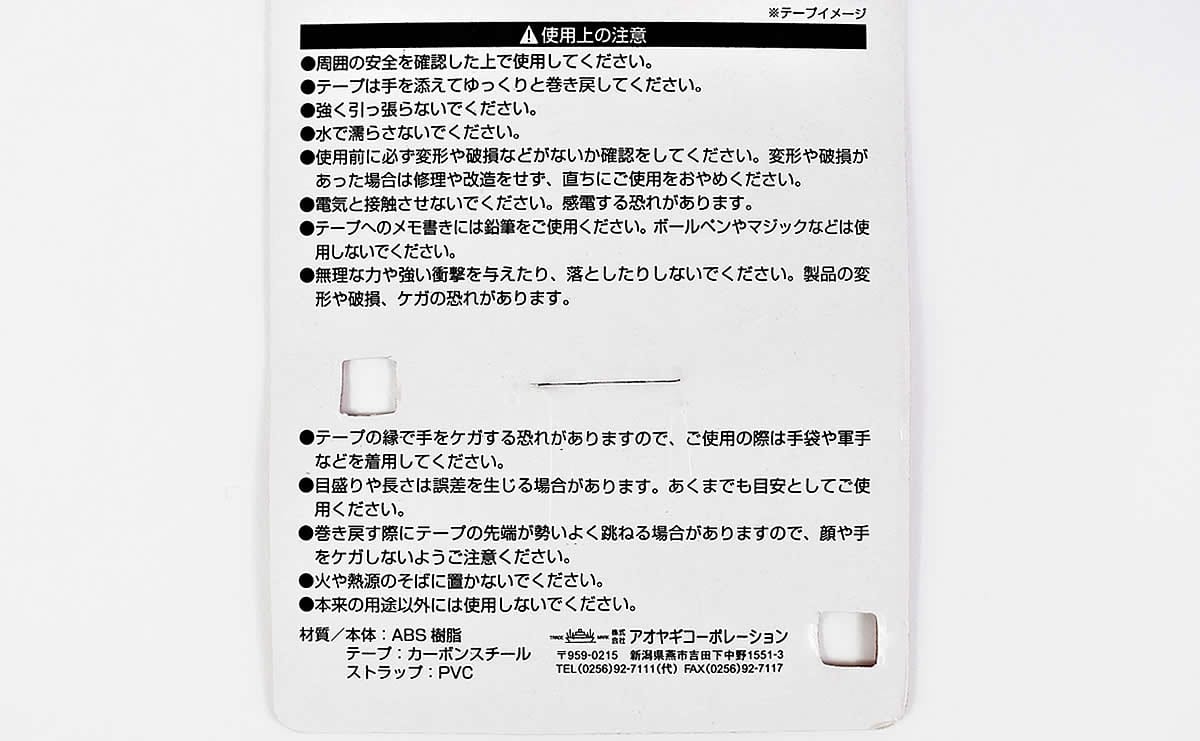 ※テープイメージ
⚠使用上の注意
●周囲の安全を確認した上で使用してください。
●テープは手を添えてゆっくりと巻き戻してください。
●強く引っ張らないでください。
●水で濡らさないでください。
●使用前に必ず変形や破損などがないか確認をしてください。変形や破損が
あった場合は修理や改造をせず、直ちにご使用をおやめください。
●電気と接触させないでください。感電する恐れがあります。
●テープへのメモ書きには鉛筆をご使用ください。ボールペンやマジックなどは使
用しないでください。
●無理な力や強い衝撃を与えたり、落としたりしないでください。製品の変
形や破損、ケガの恐れがあります。
●テープの縁で手をケガする恐れがありますので、ご使用の際は手袋や軍手
などを着用してください。
●目盛りや長さは誤差を生じる場合があります。あくまでも目安としてご使
用ください。
●巻き戻す際にテープの先端が勢いよく跳ねる場合がありますので、顔や手
をケガしないようご注意ください。
●火や熱源のそばに置かないでください。
●本来の用途以外には使用しないでください。
材質／本体：ABS樹脂
テープ：カーボンスチール
ストラップ：PVC
TRADE MARK 株式会社 アオヤギコーポレーション
〒959-0215 新潟県燕市吉田下中野1551-3
TEL(0256)92-7111(代) FAX(0256)92-7117